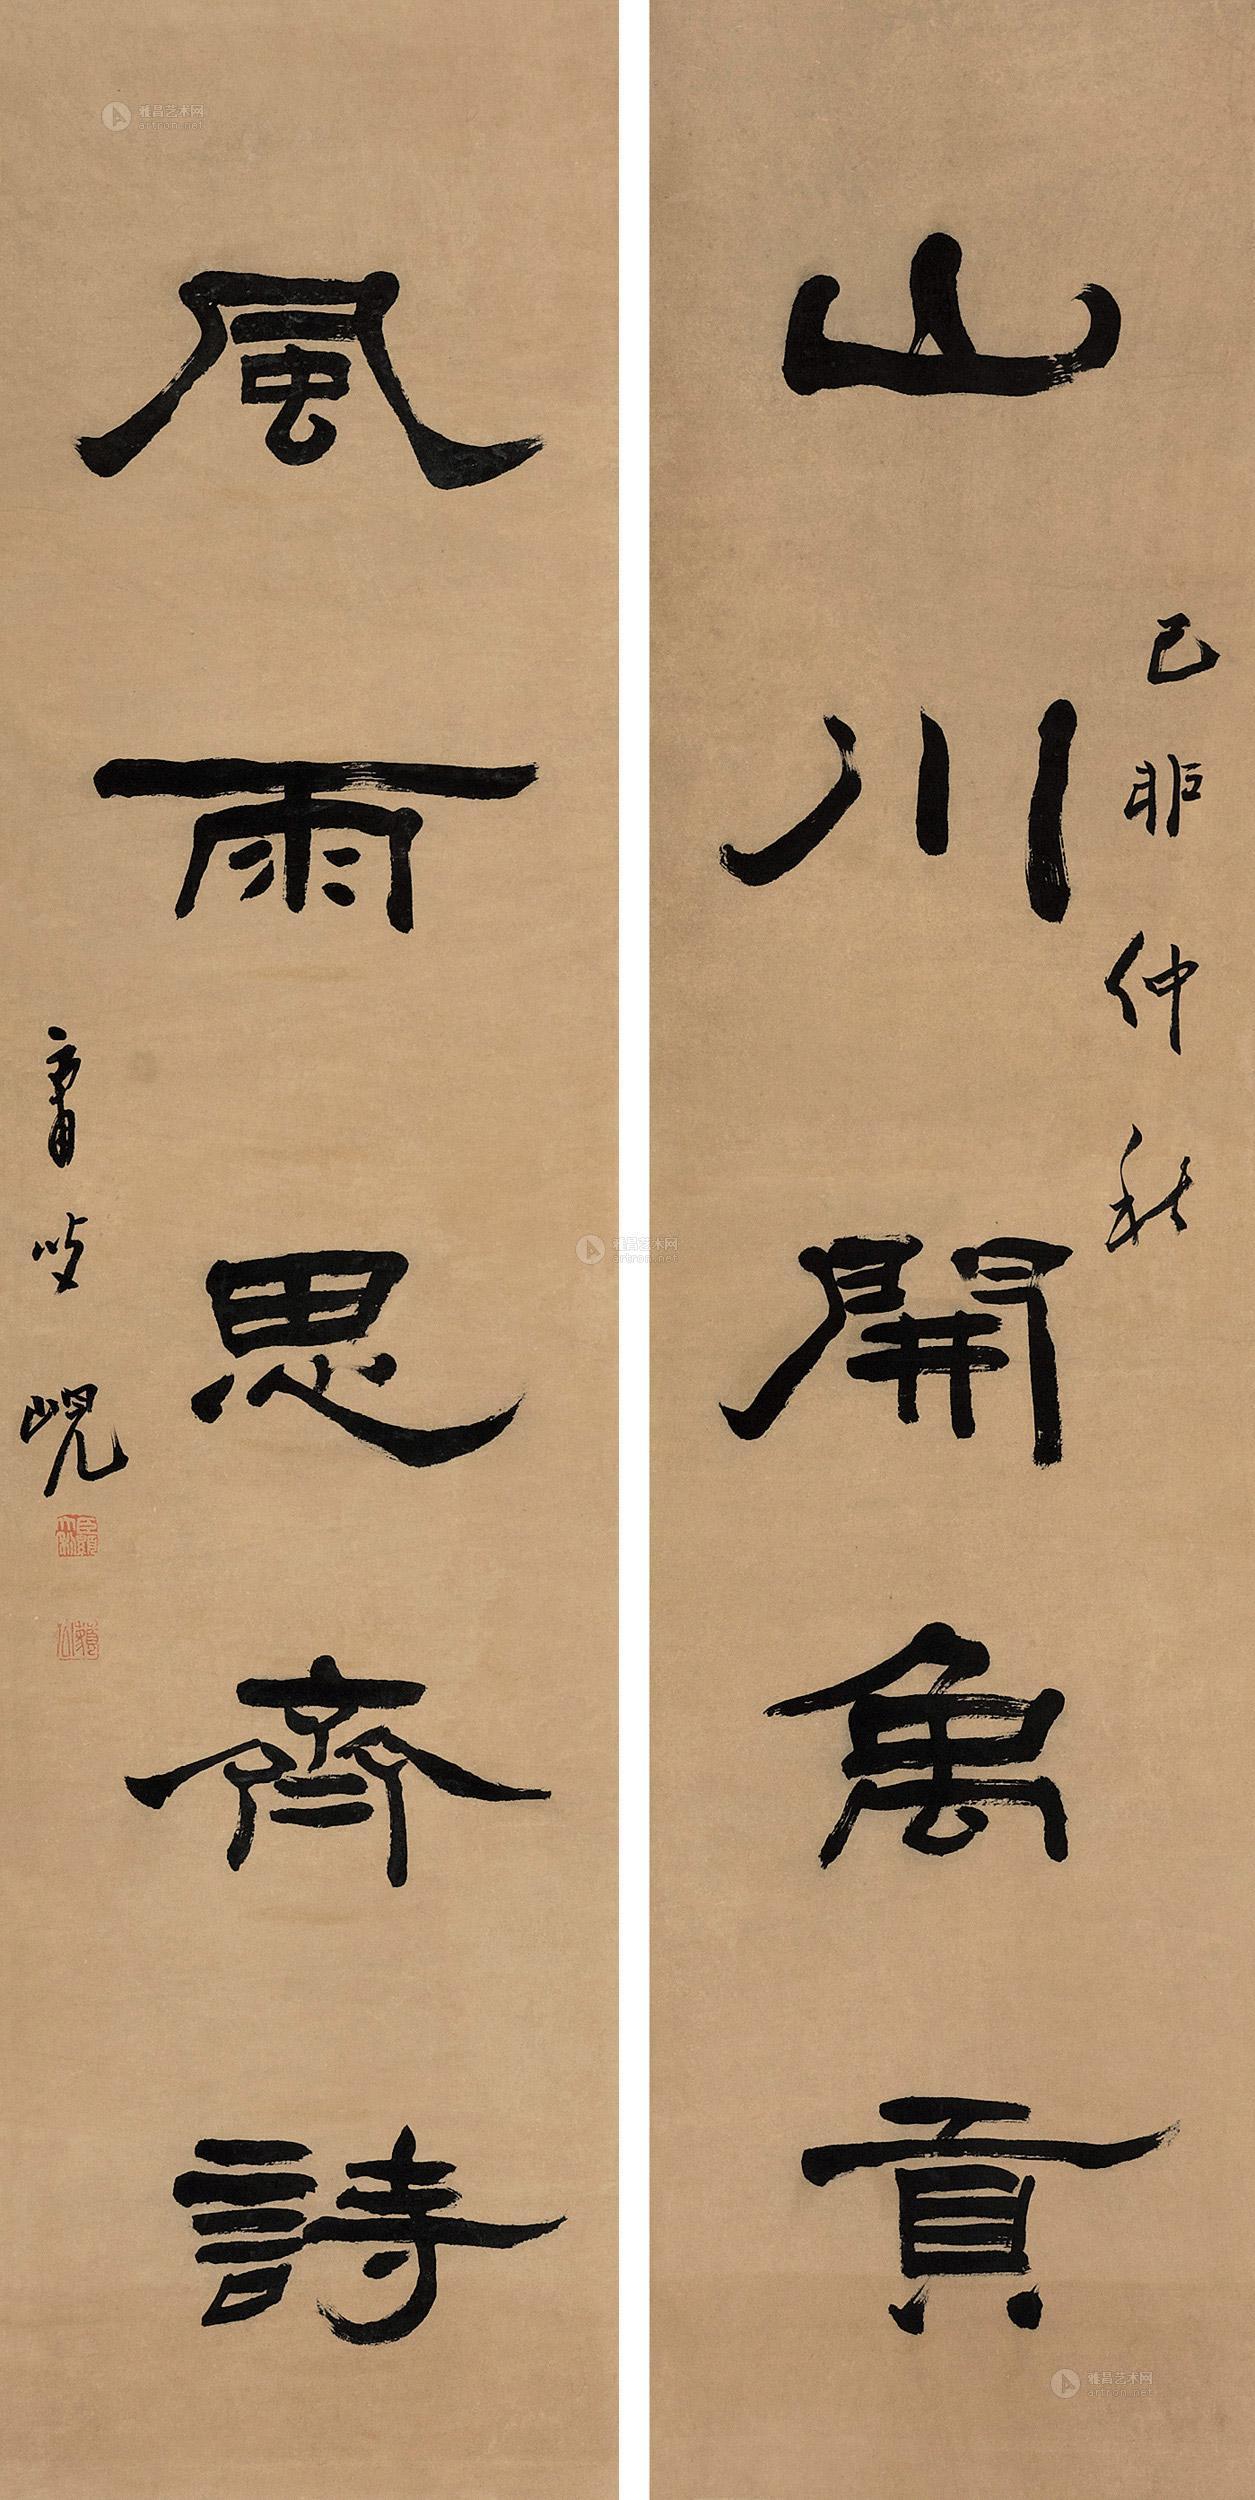 山川開禹貢
己丣仲秋
風雨思齊詩
峴
雅昌艺术网
artron.net
雅昌艺术网
artron.net
雅昌艺术网
artron.net